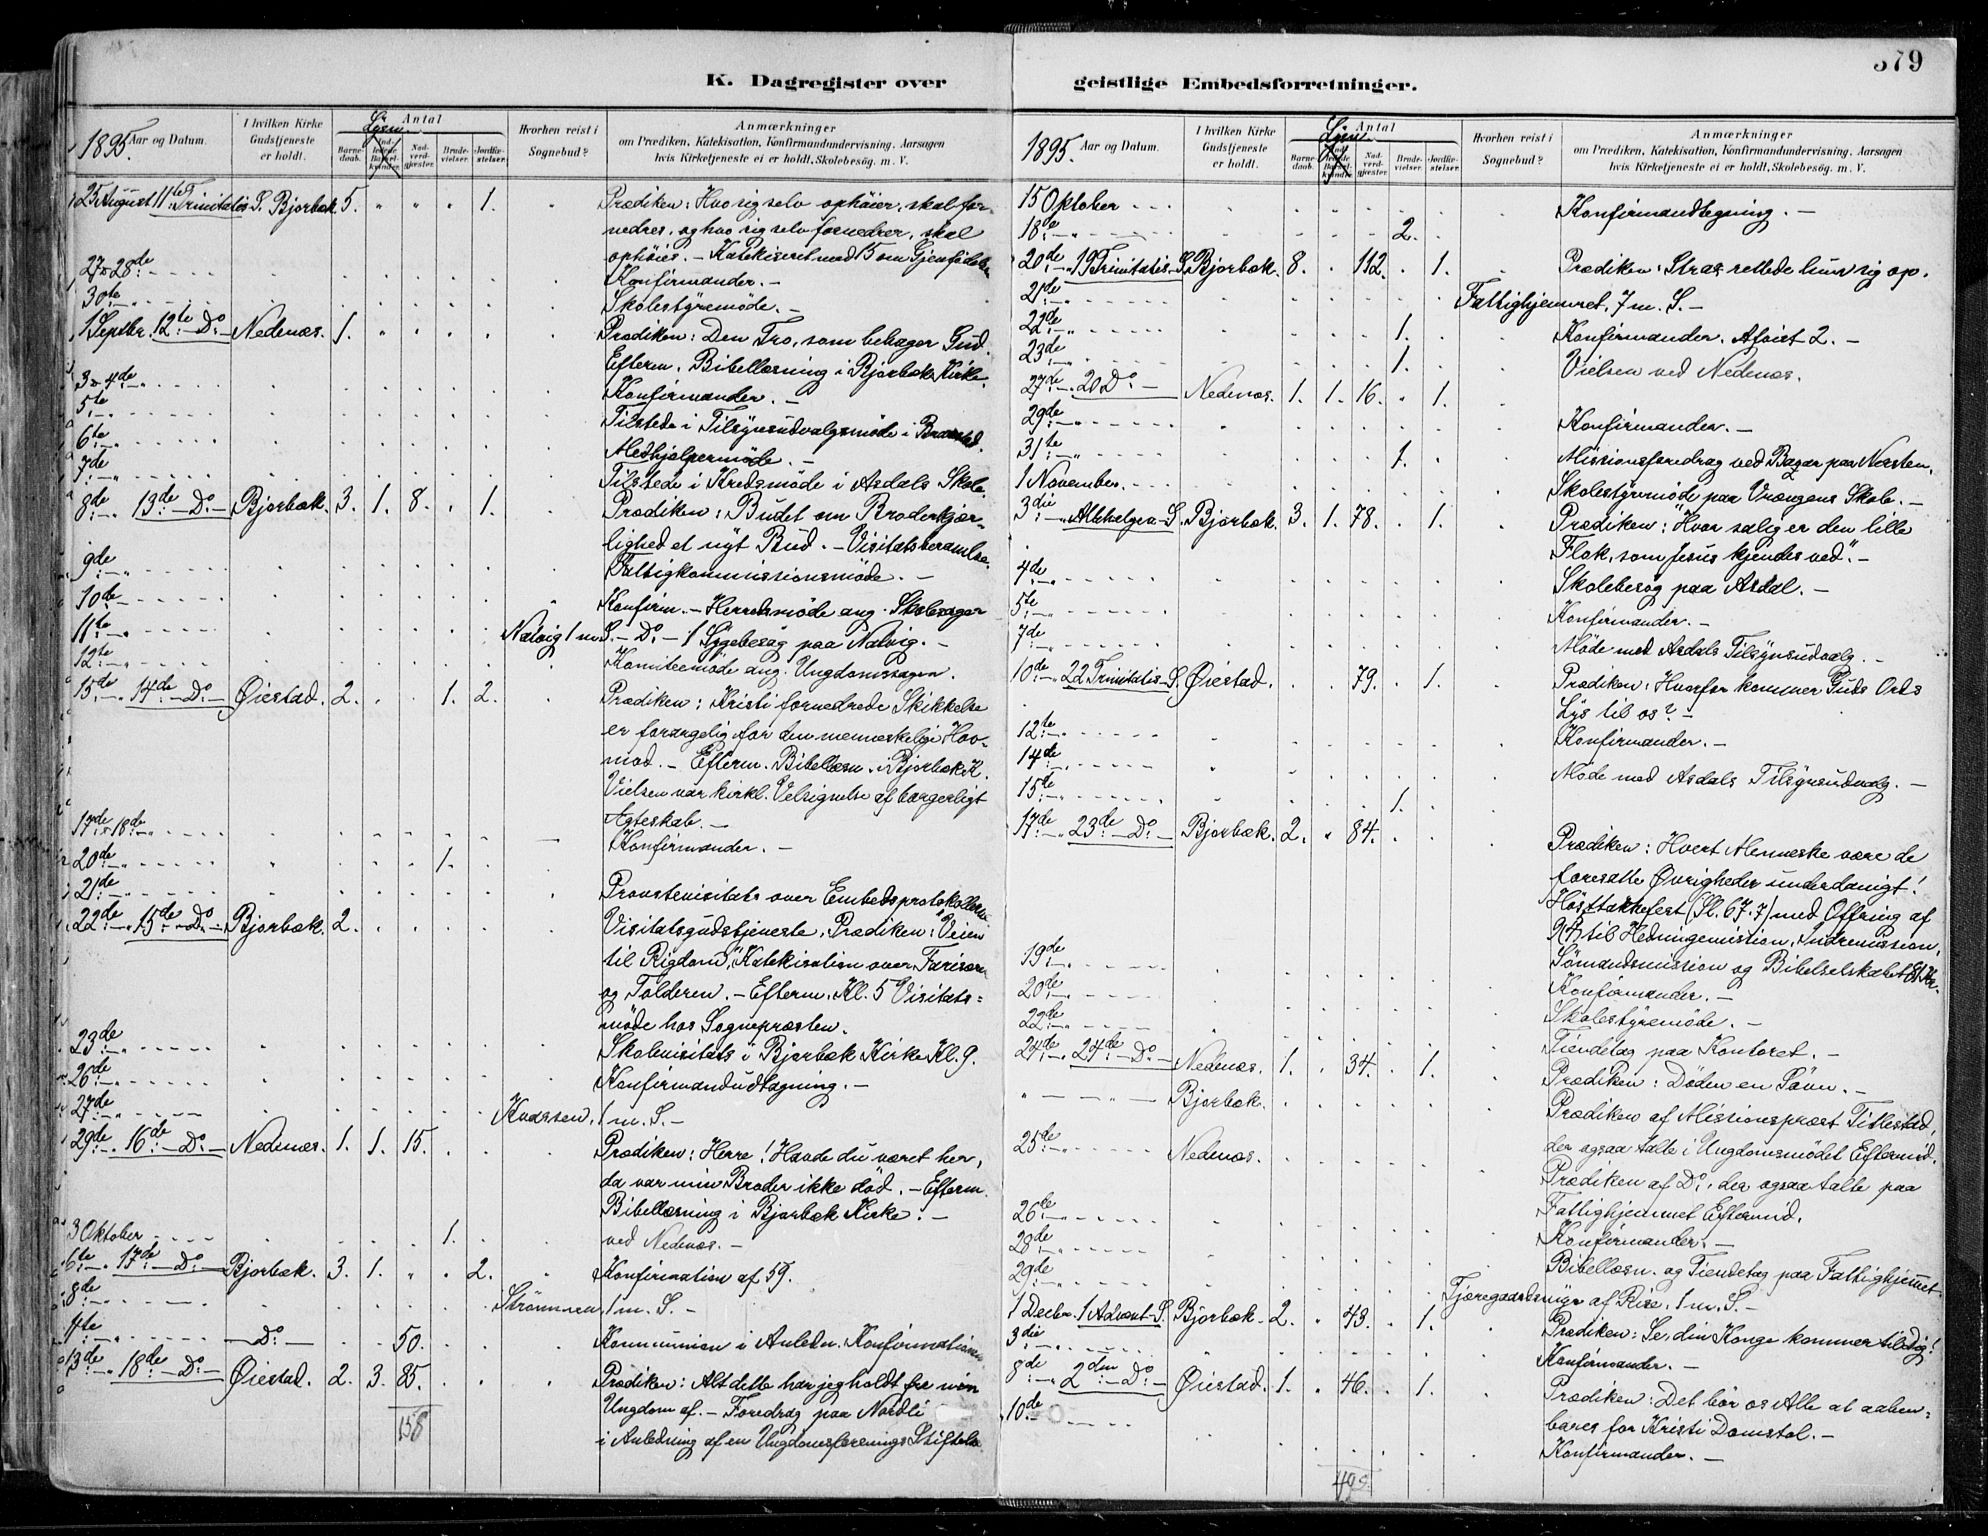 379
K. Dagregister over
geistlige Embedsforretninger.
1895. Aar og Datum.
I hvilken Kirke Gudstjeneste er holdt.
Antal
Barnedaab.
Nadverdgjester.
Brudevielser.
Jordfæstelser.
Hvorhen reist i Sognebud?
Anmærkninger
om Prædiken, Katekisation, Konfirmandundervisning. Aarsagen
hvis Kirketjeneste ei er holdt, Skolebesøg. m. V.
25 August 11te Trinitatis S. Bjorbæk. 5. " " " 1. " Prædiken: Hvo sig selv ophøier, skal for-
nedres, og hvo sig selv fornedrer, skal
ophøies. – Katekiseret med 15 om Gjenfødelse
27 & 28de Konfirmander. –
30te Skolestyremøde. –
1 Septbr. 12te Do Nedenæs. 1. Prædiken: Den Tro, som behager Gud.
Efterm. Bibellæsning i Bjorbæk Kirke.
3 & 4de Konfirmander. –
5te Tilstede i Tilsynsudvalgsmøde i
6te Medhjælpermøde. –
7de Tilstede i Kredsmøde i Asdals Skole.
8de 13de Do Bjorbæk. 3. 1. 8. . 1. Prædiken: Budet om Broderkjær-
lighed et nyt Bud. –
9de Fattigkommissionsmøde. –
10de Konfirm. – Herredsmøde ang. Skolesager
11te Natvig 1 m. S. – Do – 1 Sygebesøg paa Natvig. –
12te Komiteemøde ang. Ungdomssagen.
15de 14de Do Øiestad. 2. . . 1. 2. Prædiken: Kristi fornedrede Skikkelse
er forargelig for den menneskelige Hov-
mod. – Efterm. Bibellæsn. i Bjorbæk K.
Vielsen var kirkl. Velsignelse af borgerligt
Ægteskab. –
17de & 18de Konfirmander. –
20de 1.
21de Provstevisitats over Embedsprotokollerne
22de 15de Do Bjorbæk. 2. Visitatsgudstjeneste, Prædiken: "Veien
til Rigdom," Katekisation over Farisæren
og Tolderen. – Efterm. Kl. 5 Visitats-
møde hos Sognepræsten.
23de Skolevisitats i Bjorbæk Kirke Kl. 9.
26de Konfirmandudtagning. –
27de 1 m. S. –
29de 16de Do Nedenæs. 1. 1. 15. Prædiken: Herre! Havde du været her,
da var min Broder ikke død. – Efterm.
Bibellæsning i Bjorbæk Kirke. –
3 Oktober 1. ved Nedenæs. –
6te 17de Do Bjorbæk. 3. 1. " " 2. Konfirmation af 59.
8de Strømmen, 1 m. S. –
11te Do 50. Kommunion i Anledn. Konfirmationen
13de 18de Do Øiestad. 2. 3. 85. Prædiken: Alt dette har jeg holdt fra min
Ungdom af. – Foredrag paa Nordli
i Anledning af en Ungdomsforenings Stiftelse
158
1895. Aar og Datum.
I hvilken Kirke Gudstjeneste er holdt.
Antal
Barnedaab.
Nadverdgjester.
Brudevielser.
Jordfæstelser.
Hvorhen reist i Sognebud?
Anmærkninger
om Prædiken, Katekisation, Konfirmandundervisning. Aarsagen
hvis Kirketjeneste ei er holdt, Skolebesøg. m. V.
15 Oktober Konfirmandtegning. –
18de 2.
20de 19 Trinitatis S. Bjorbæk. 8. . 112. . 1. Prædiken: Strax rettede hun sig op.
21de Fattighjemmet, 7 m. S. –
22de 1. Konfirmander. Afvist 2. –
23de 1. Vielsen ved Nedenæs.
27de 20 Do Nedenæs. 1. 1. 16. " 1.
29de Konfirmander. –
31te 1. Missionsforedrag ved Bazar paa Næsten.
1 November. Skolestyremøde paa Vrengens Skole. –
3die Allehelgen S. Bjorbæk. 3. 1. 78. . 1. Prædiken: "Hvor salig er den lille
Flok, som Jesus kjendes ved". –
4de Skolebesøg paa Asdal. –
5te Konfirmander. –
7de Møde med Asdals Tilsynsudvalg. –
10de 22 Trinitatis S. Øiestad. . . 79. . 1. Prædiken: Hvorfor kommer Guds Ords
Lys til os? –
12te Konfirmander. –
14de Møde med Asdals Tilsynsudvalg. –
15te 1.
17de 23de Do Bjorbæk. 2. " 84. Prædiken: Hvert Menneske være de
foresatte Øvrigheder underdanigt!
Høsttakkefest (Sl. 67. 7) med Offring af
til Hedningemission, Indremission,
Sømandsmission og Bibelselskabet
19de Konfirmander. –
20de Skolestyremøde. –
22de Tiendetag paa Kontoret. –
24de 24de Do Nedenæs. 1. . 34. . 1. Prædiken: Døden en Søvn. –
" Bjorbæk. Prædiken af Missionspræst Titlestad,
der ogsaa talte i Ungdomsmødet Eftermid.
25de Nedenæs. Prædiken af Do, der ogsaa talte paa
Fattighjemmet Eftermid.
26te Konfirmander. –
28de Bibellæsn. og Tiendetag paa Fattighjemmet
29de Tjæregaardsmyr af Rise, 1 m. S. –
1 Decbr. 1 Advent S. Bjorbæk. 2. " 43. . 1. Prædiken: Se, din Konge kommer til dig!
3die Konfirmander. –
8de 2den Do Øiestad. 1. " 46. . 1. Prædiken: Det bør os Alle at aaben-
bares for Kristi Domstol. –
10de Konfirmander. –